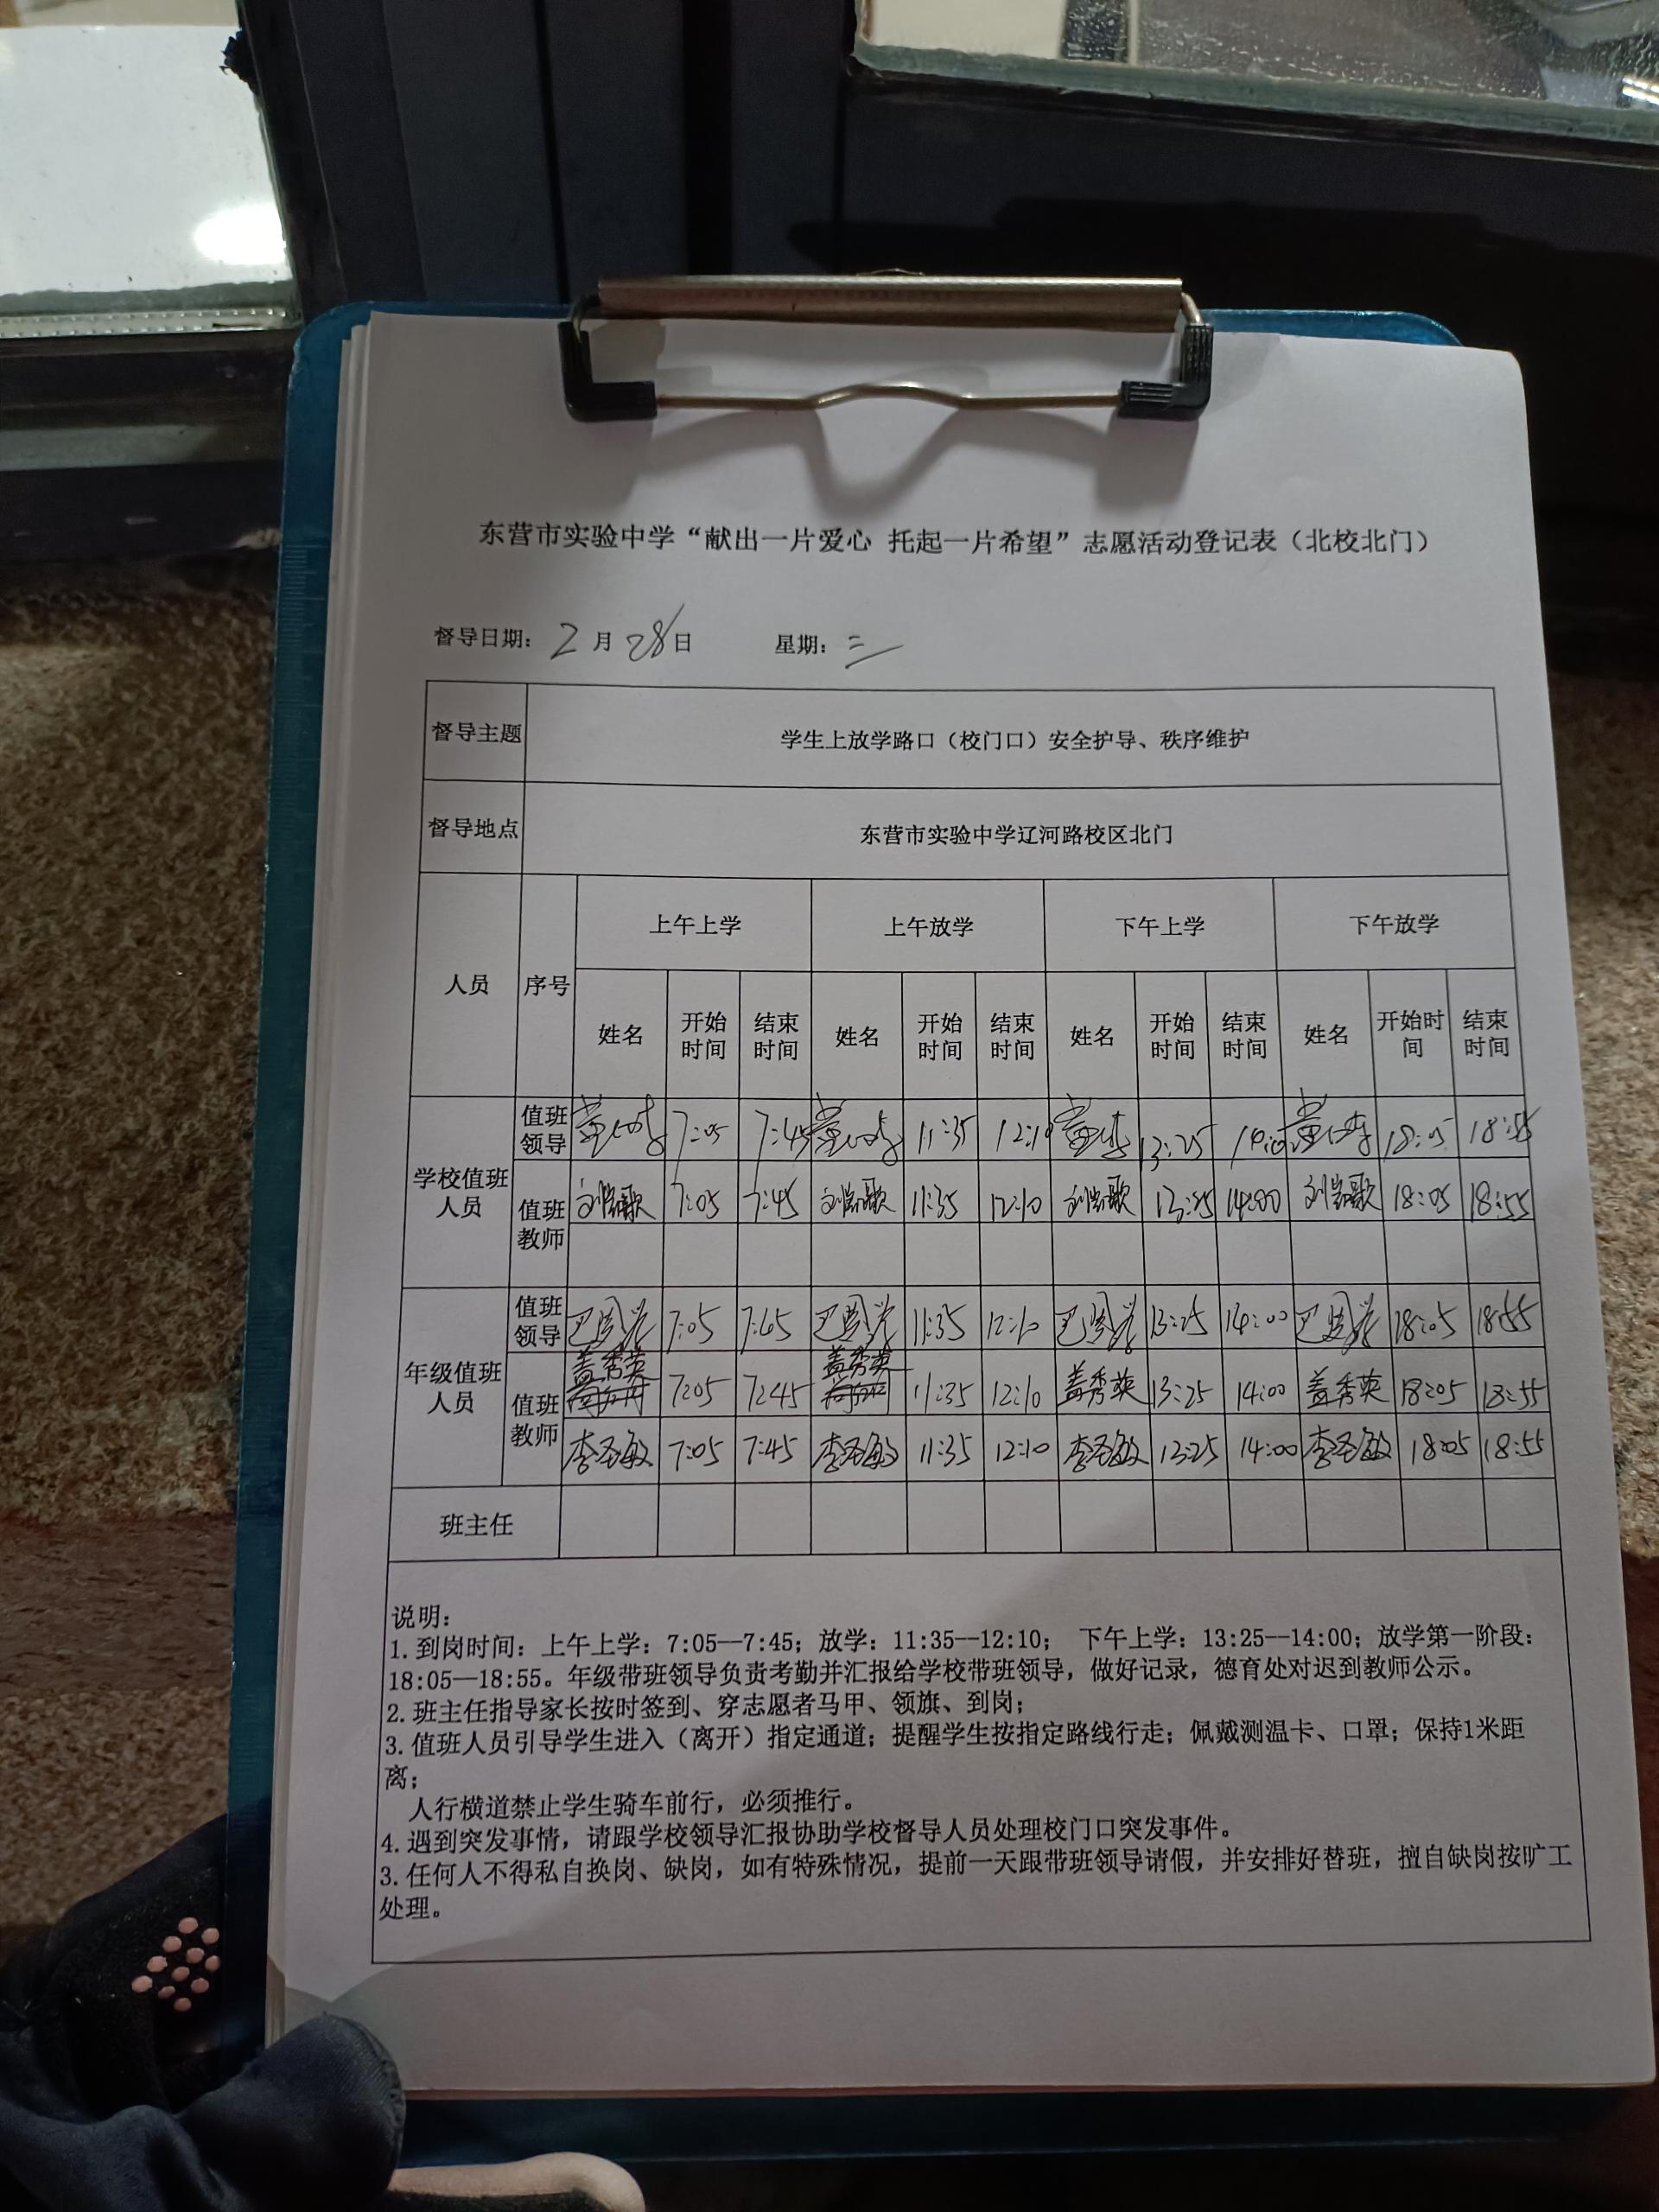 东营市实验中学“献出一片爱心 托起一片希望”志愿活动登记表（北校北门）
督导日期： 2 月 28 日 星期： 二
督导主题 学生上放学路口（校门口）安全护导、秩序维护
督导地点 东营市实验中学辽河路校区北门
人员 序号 上午上学 上午放学 下午上学 下午放学
姓名 开始时间 结束时间 姓名 开始时间 结束时间 姓名 开始时间 结束时间 姓名 开始时间 结束时间
学校值班人员
值班领导 7:05 7:45 11:35 12:10 13:25 18:05 18:55
值班教师 7:05 7:45 11:35 12:10 13:25 14:00 18:05 18:55
年级值班人员
值班领导 7:05 7:45 11:35 12:10 13:25 14:00 18:05 18:55
值班教师 盖秀英 7:05 7:45 盖秀英 11:35 12:10 盖秀英 13:25 14:00 盖秀英 18:05 18:55
李圣敏 7:05 7:45 李圣敏 11:35 12:10 李圣敏 13:25 14:00 李圣敏 18:05 18:55
班主任
说明：
1. 到岗时间：上午上学：7:05—7:45；放学：11:35—12:10； 下午上学：13:25—14:00；放学第一阶段：
18:05—18:55。年级带班领导负责考勤并汇报给学校带班领导，做好记录，德育处对迟到教师公示。
2. 班主任指导家长按时签到、穿志愿者马甲、领旗、到岗；
3. 值班人员引导学生进入（离开）指定通道；提醒学生按指定路线行走；佩戴测温卡、口罩；保持1米距
离；
人行横道禁止学生骑车前行，必须推行。
4. 遇到突发事情，请跟学校领导汇报协助学校督导人员处理校门口突发事件。
3. 任何人不得私自换岗、缺岗，如有特殊情况，提前一天跟带班领导请假，并安排好替班，擅自缺岗按旷工
处理。